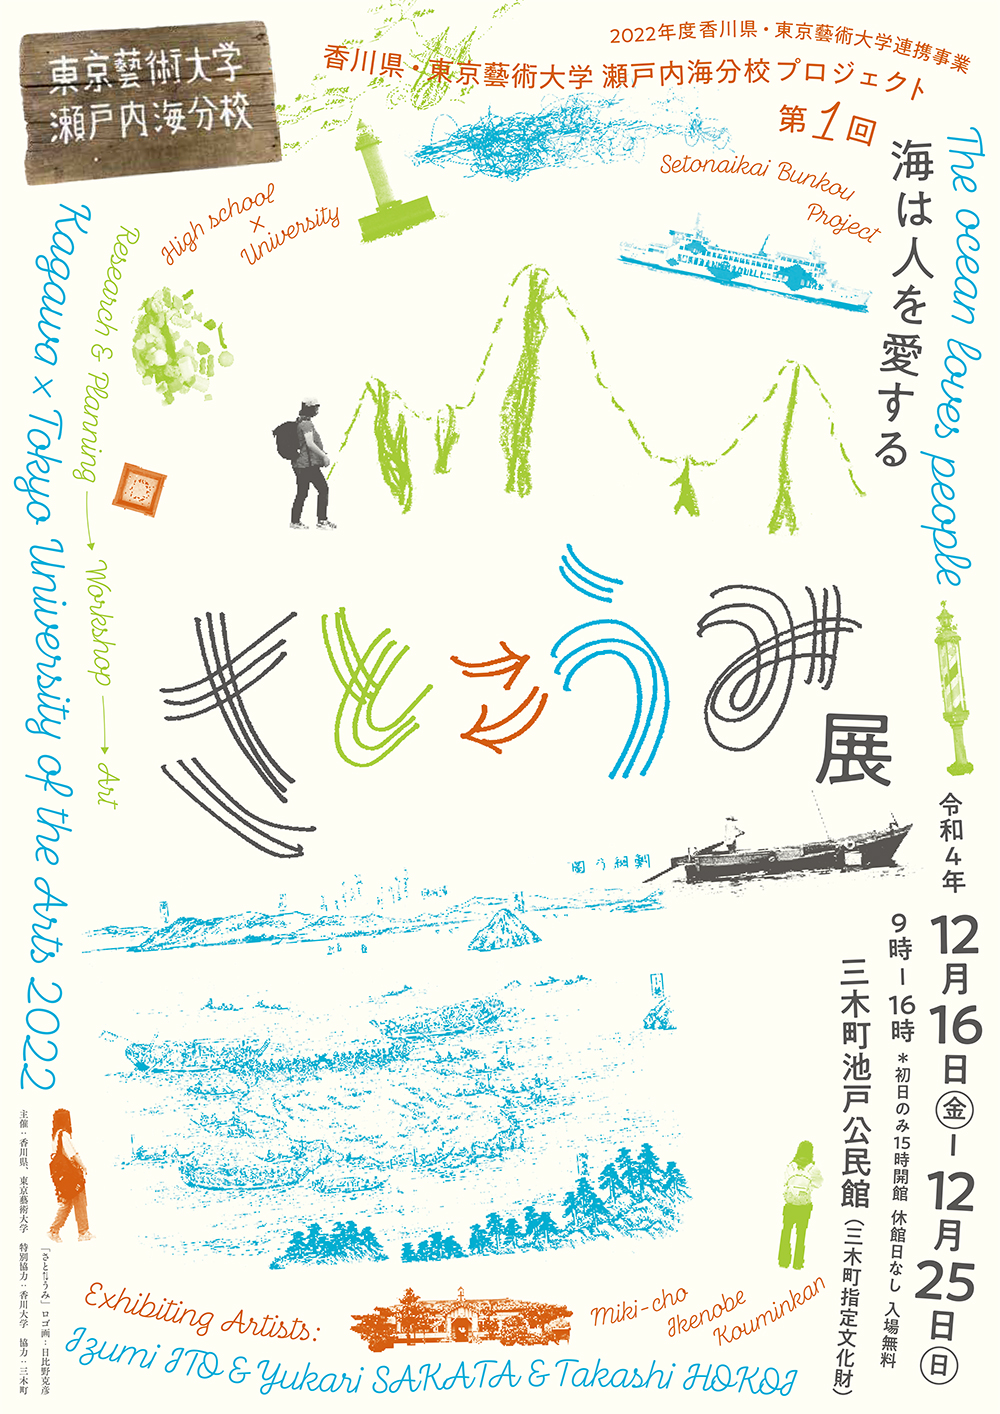 東京藝術大学
瀬戸内海分校
2022年度香川県・東京藝術大学連携事業
香川県・東京藝術大学 瀬戸内海分校プロジェクト
第1回
Setonaikai Bunkou
Project
海は人を愛する
The ocean loves people
High school
×
University
Research & Planning → Workshop → Art
Kagawa × Tokyo University of the Arts 2022
さと⇄うみ
展
令和4年
12月16日㊎ー12月25日㊐
9時ー16時 *初日のみ15時開館 休館日なし 入場無料
三木町池戸公民館(三木町指定文化財)
Exhibiting Artists:
Izumi ITO & Yukari SAKATA & Takashi HOKOI
Miki-cho
Ikenobe
Kouminkan
主催:香川県、東京藝術大学 特別協力:香川大学 協力:三木町
「さと⇄うみ」ロゴ画:日比野克彦